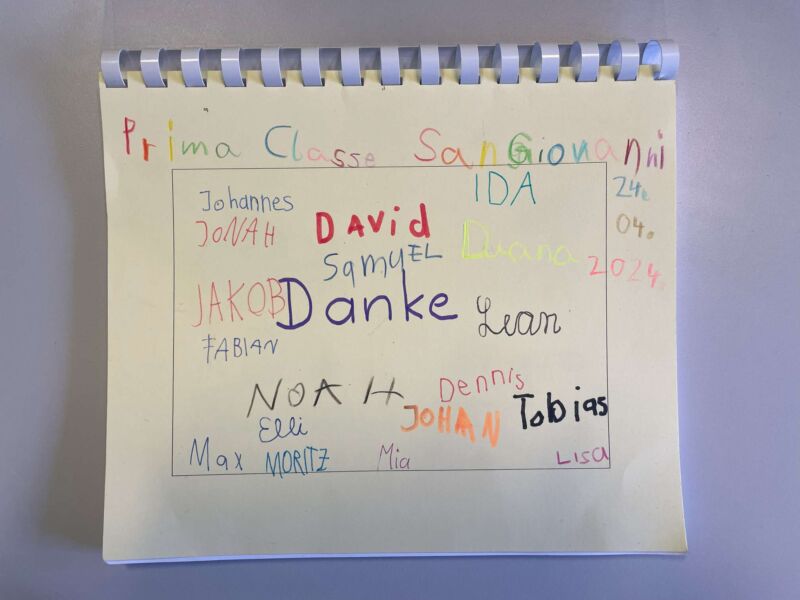 Prima Classe San Giovanni
24.
04.
2024.
IDA
Johannes
JONAH
David
SamuEL
JAKOB
Danke
Lean
FABIAN
NOAH
Dennis
JOHAN
Tobias
Elli
Max
MORITZ
Mia
Lisa